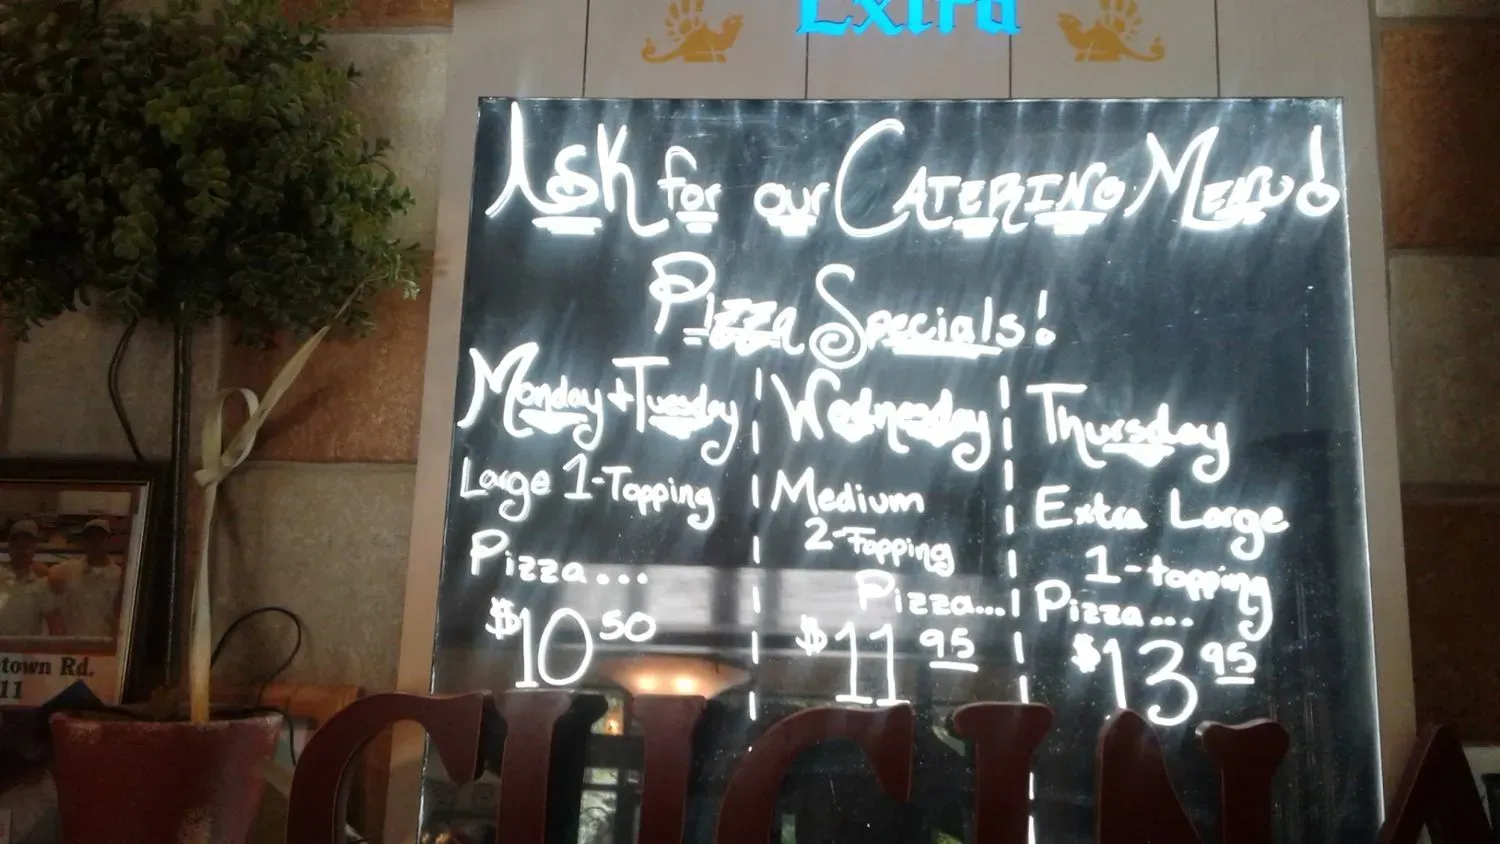 Extra
Ask for our Catering Menu!
Pizza Specials!
Monday + Tuesday
Large 1-Topping
Pizza...
$10 50
Wednesday
Medium
2-Topping
Pizza...
$11 95
Thursday
Extra Large
1-topping
Pizza...
$13 95
town Rd.
11
CUCINA